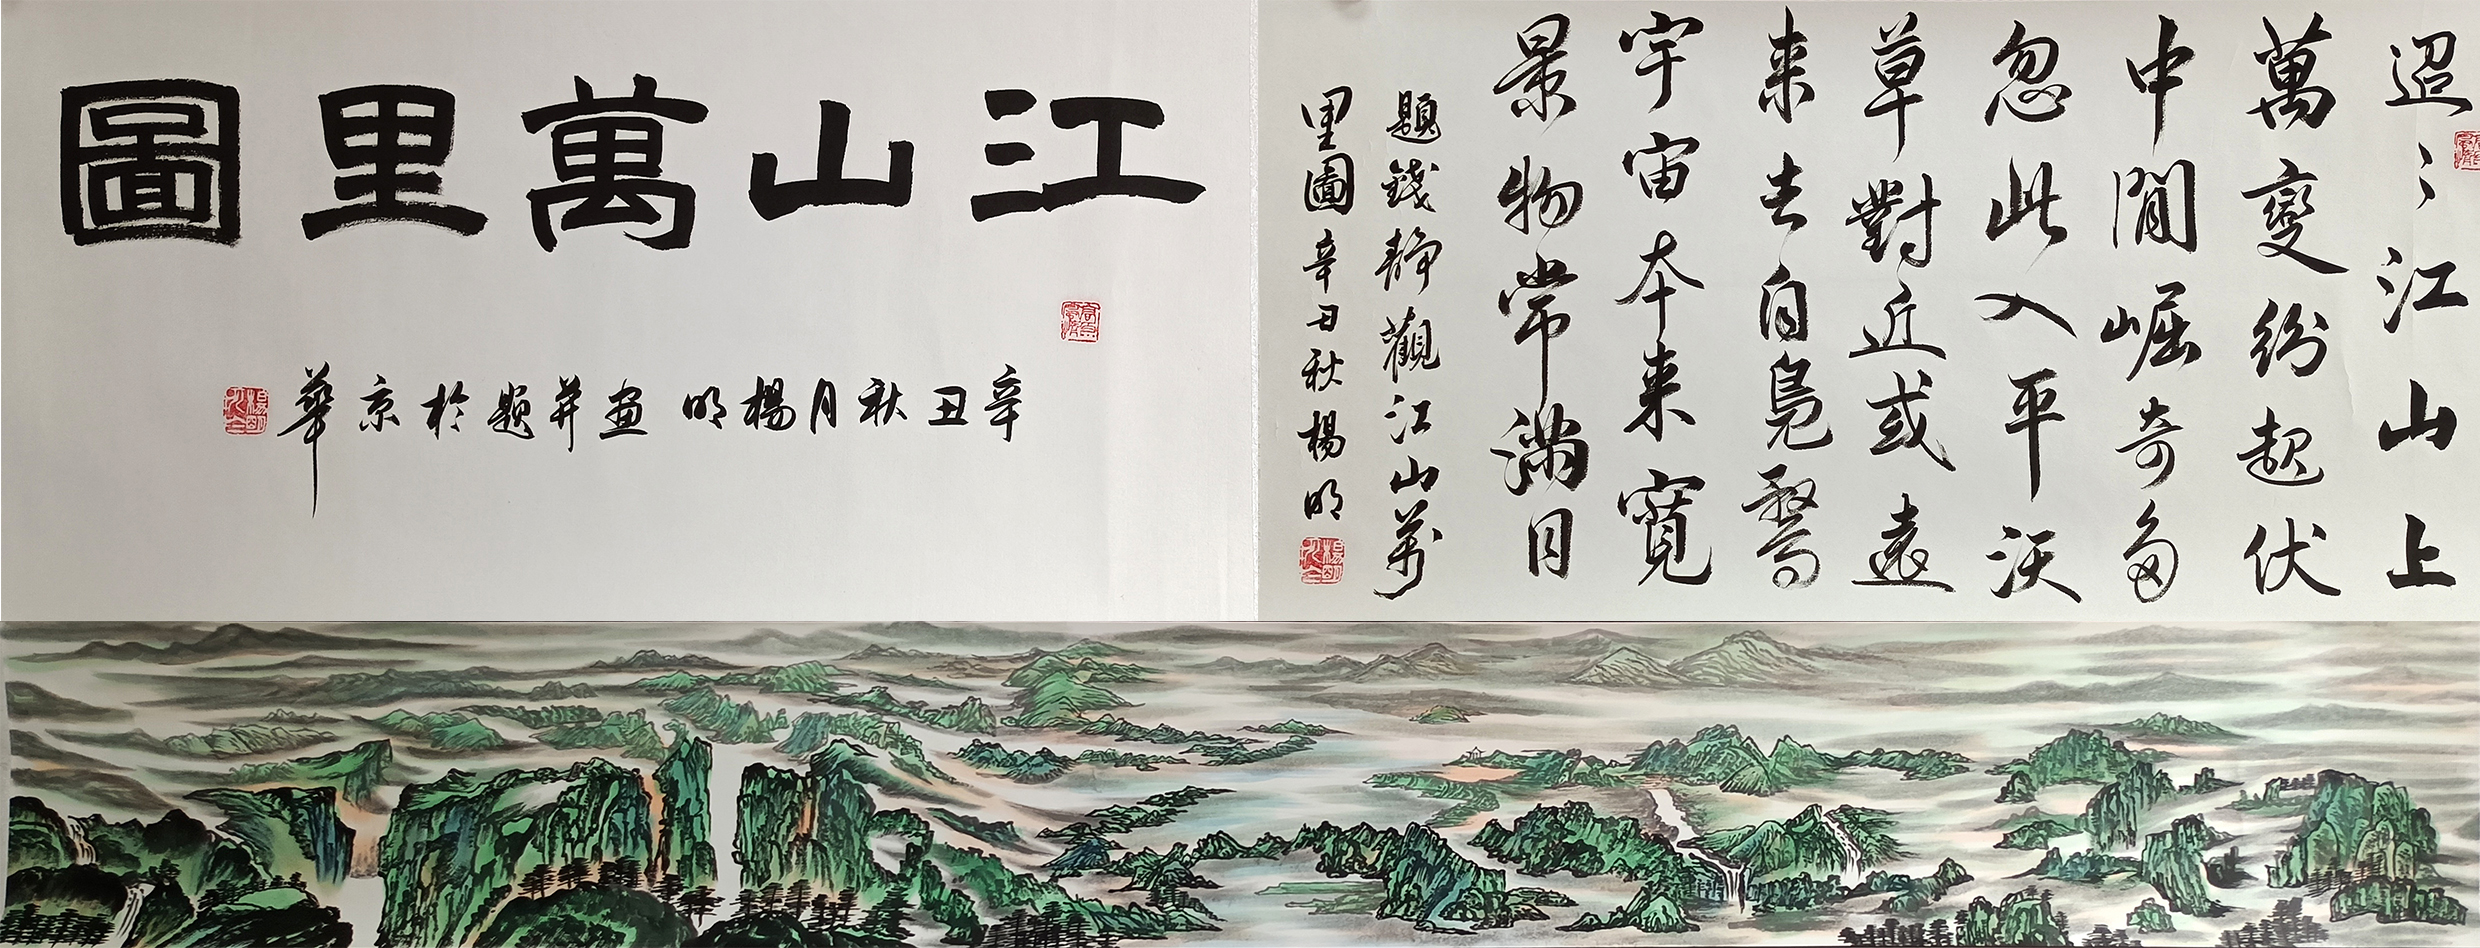 江山萬里圖
辛丑秋月楊明畫并題於京華
迢〻江山上
萬變紛起伏
中閒崛奇多
忽此入平沃
草對近或遠
来去自鳧鶩
宇宙本来寬
景物常滿目
題錢靜觀江山萬
里圖辛丑秋楊明